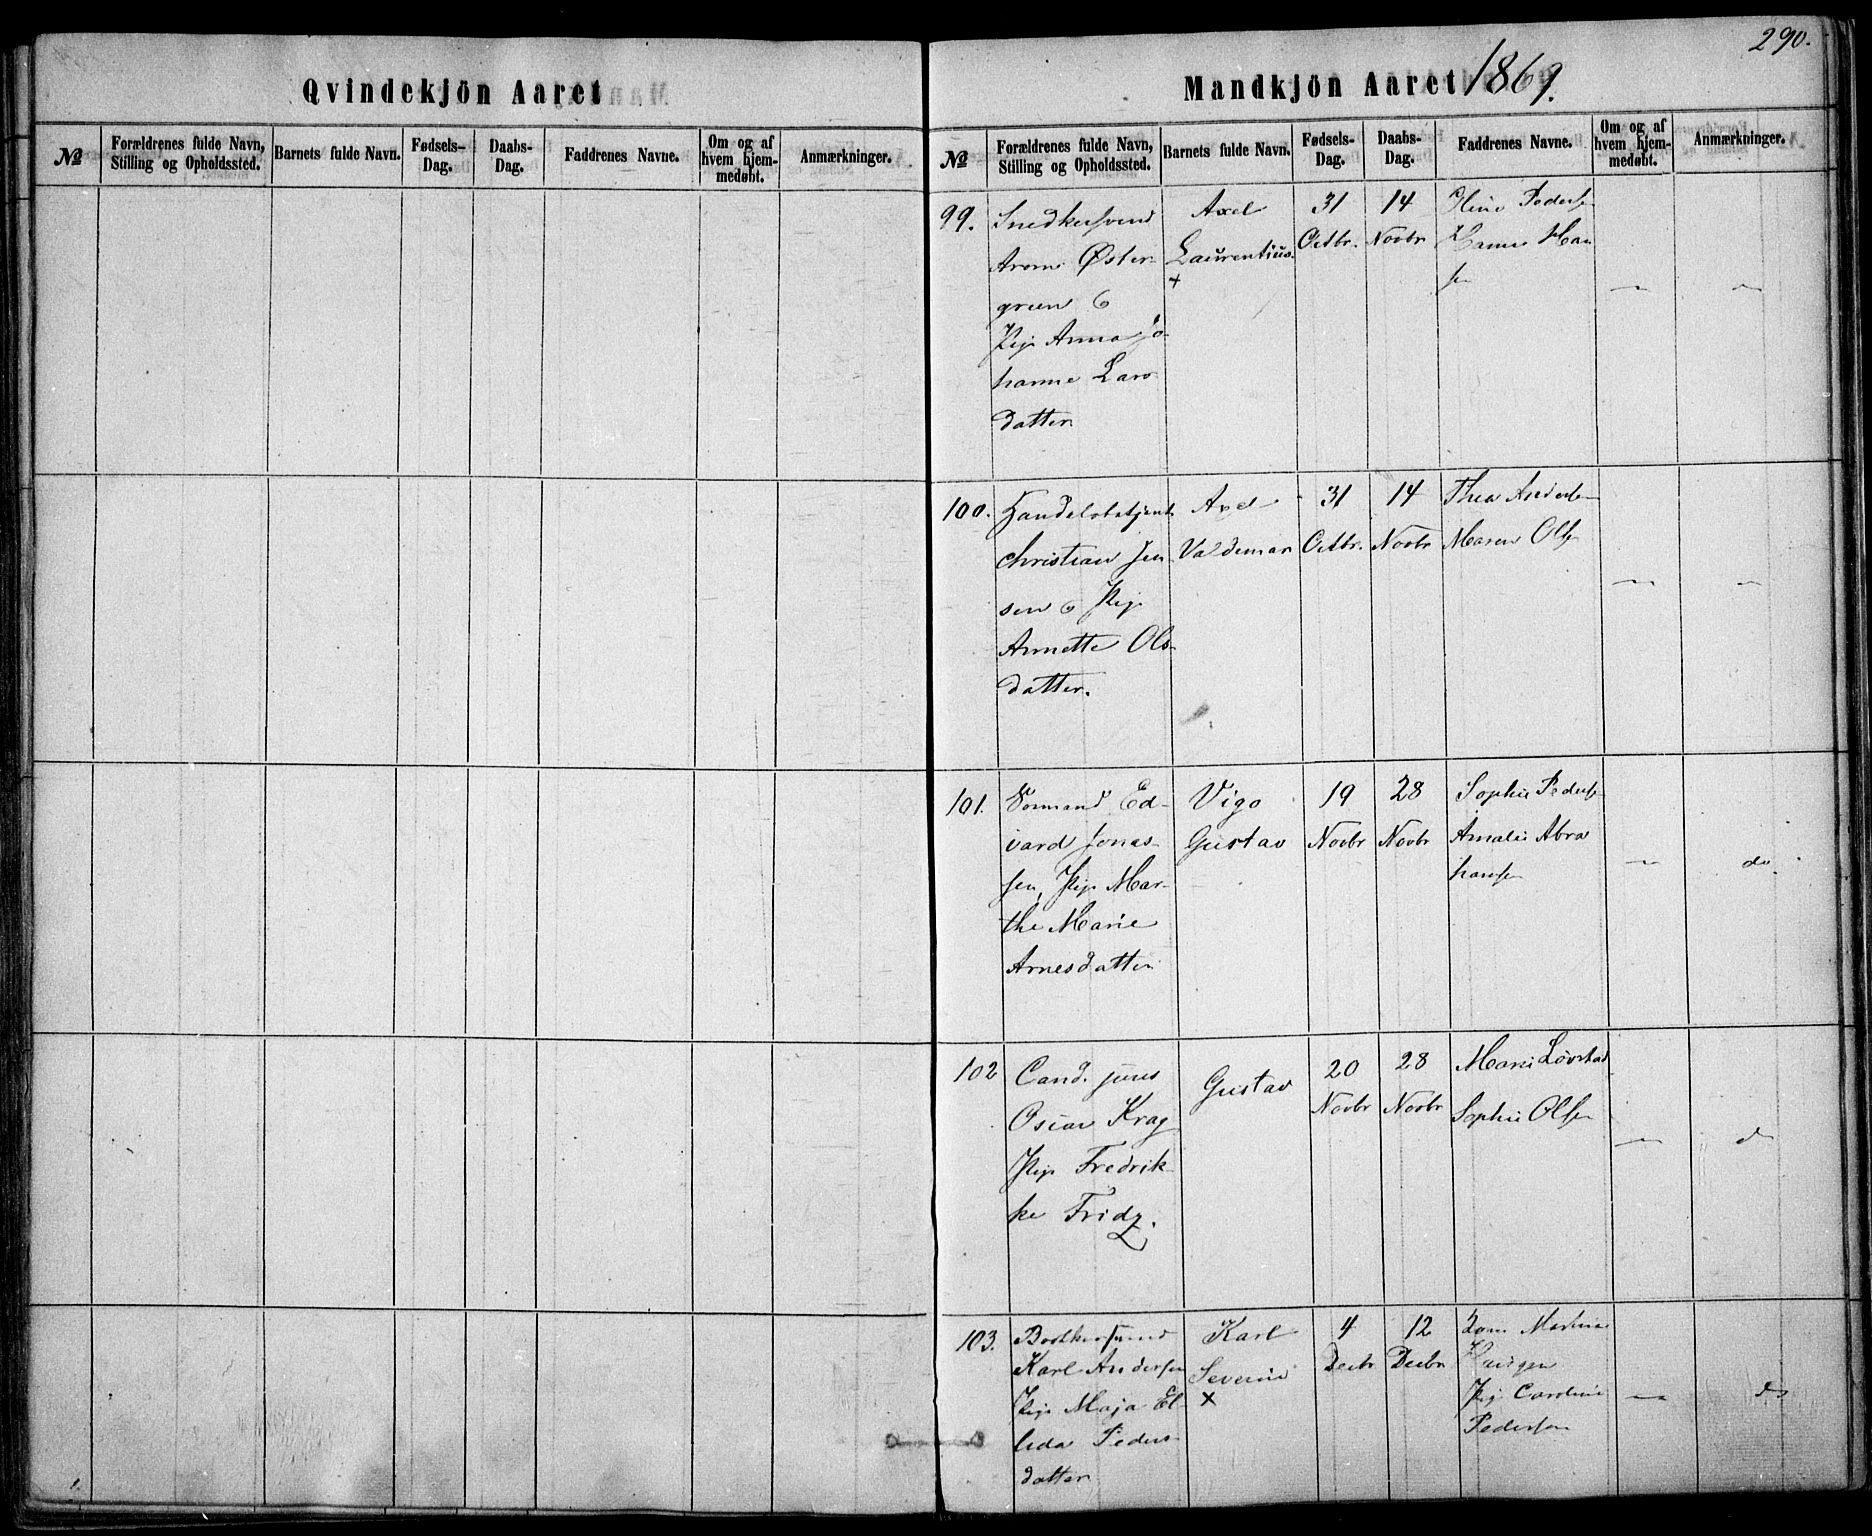 290.
Qvindekjön Aaret
Mandkjön Aaret 1869.
№
Forældrenes fulde Navn, Stilling og Opholdssted.
Barnets fulde Navn.
Fødsels-Dag.
Daabs-Dag.
Faddrenes Navne.
Om og af hvem hjem-medøbt.
Anmærkninger.
№
Forældrenes fulde Navn, Stilling og Opholdssted.
Barnets fulde Navn.
Fødsels-Dag.
Daabs-Dag.
Faddrenes Navne.
Om og af hvem hjem-medøbt.
Anmærkninger.
99.
Snedkersvend
Øster-
green
Pige Anna Jo-
hanne Lars
datter
Axel
Laurentius.
+
31
Octbr.
14
Novbr
Peders
Hanna Han
sn
100.
Handelsbetjent
Christian Jen
sen & Pige
Annette Ols-
datter.
Axel
Valdemar
31
Octbr.
14
Novbr
Thea Anders
Maren Olsn
101.
Formand Ed-
vard Jonas-
sen, Pige Mar-
the Marie
Arnesdatter
Vigo
Gustav
19
Novbr
28
Novbr
Sophie Peders
Amalie Abra
hamsn
do.
102
Cand. juris
Oscar Krag
Pige Fredrik
ke Fridz.
Gustav
20
Novbr
28
Novbr
Marie Løvstad
Sophie Olsen
103.
Bødkersvend
Karl Andersen
Pige Maja El
lida Peders
datter
Karl
Severin
+
4
Decbr
12
Decbr
Martine
Pige Caroline
Pedersen
do